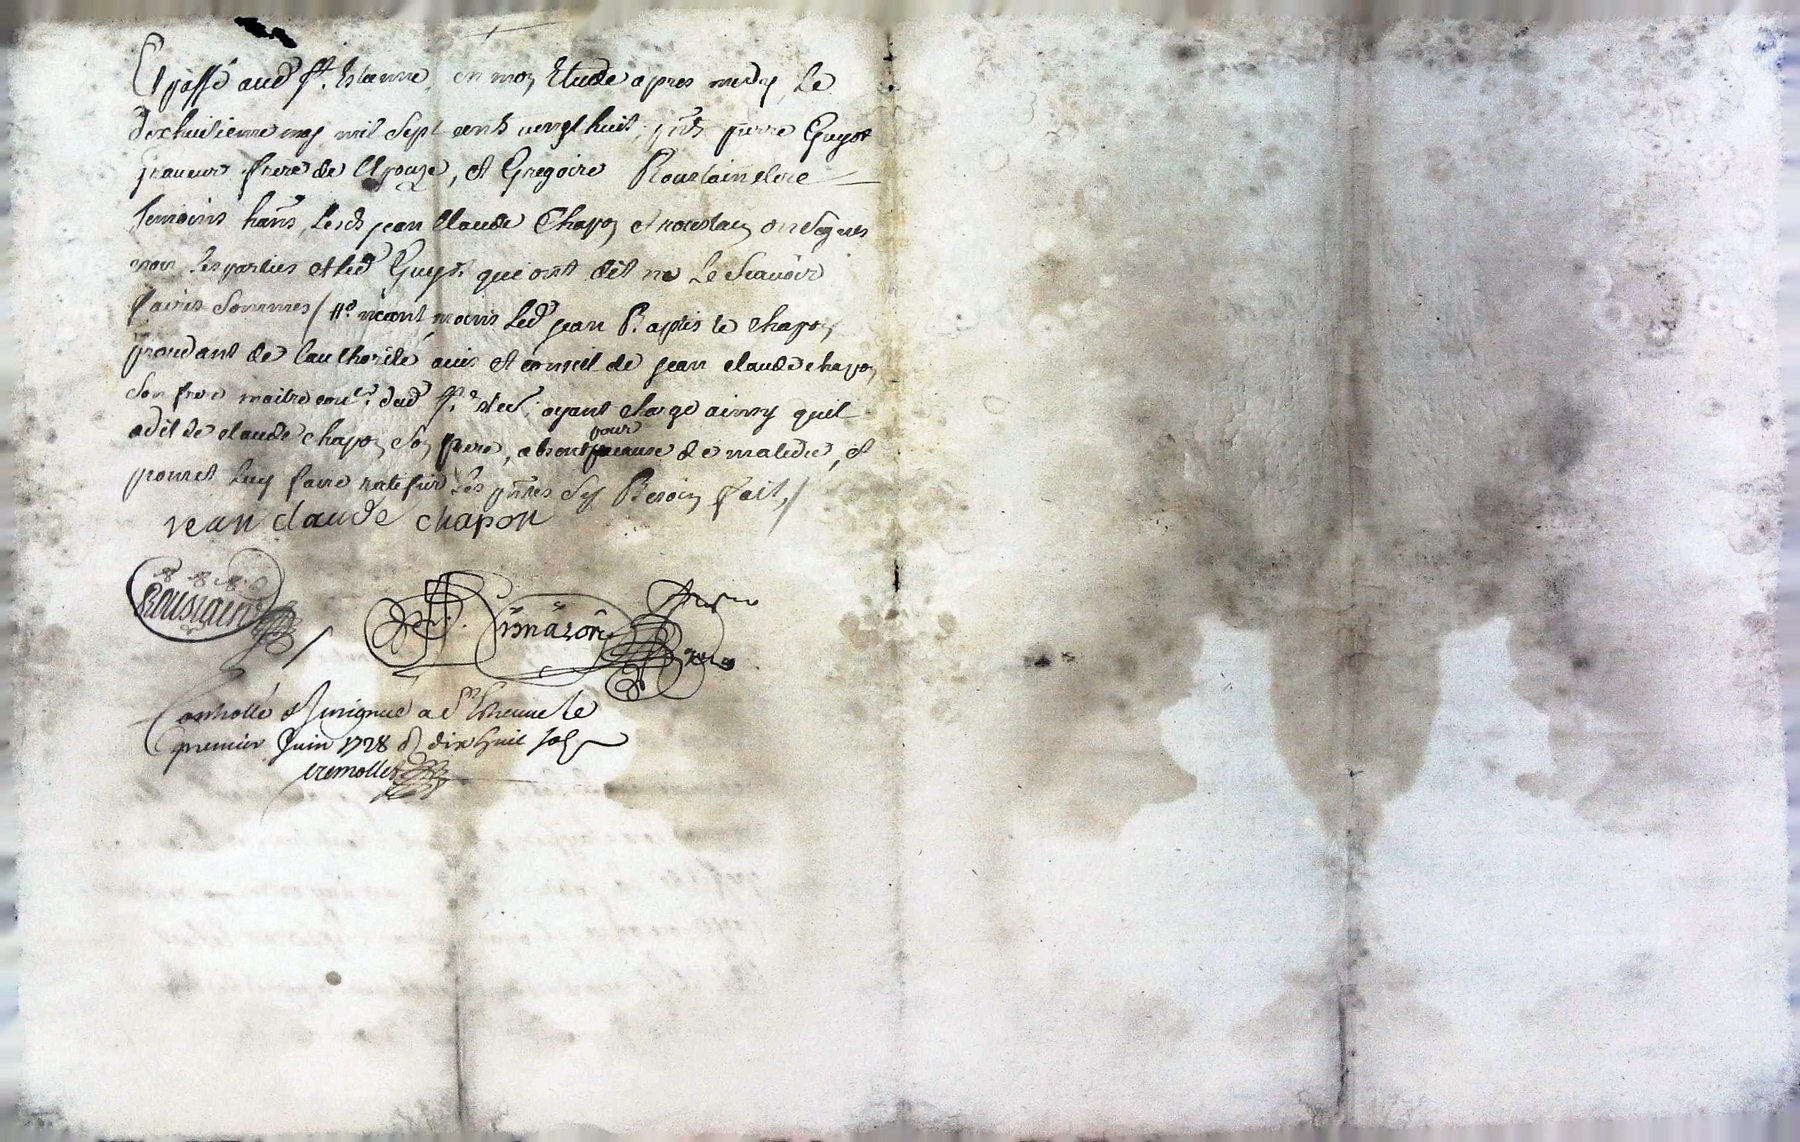 Et passé aud St. Estienne, en mon Etude apres midy, Le
dixhuitieme may mil sept cents vingt huit, pnts pierre Guyot
graveur frere de l'Epouze, et Gregoire Roustain clerc
temoins hants, Lesds jean Claude Chapon et roustain ont signés
non Les parties et led Guyot qui ont dit ne le scavoir
faire sommes / neant moins Led jean Baptiste chapon
procedant de l'authorité avis et conseil de jean claude chapon
son frere maitre dud St. Este, ayant charge ainsy quil
a dit de claude chapon son pere, absent pour cause de maladie, et
promet luy faire ratefier Les pntes sy Besoin fait, /
jean claude chapon
Roustain
Controllé et Insigné a St Etienne le
premier Juin 1728 R dix huit sols